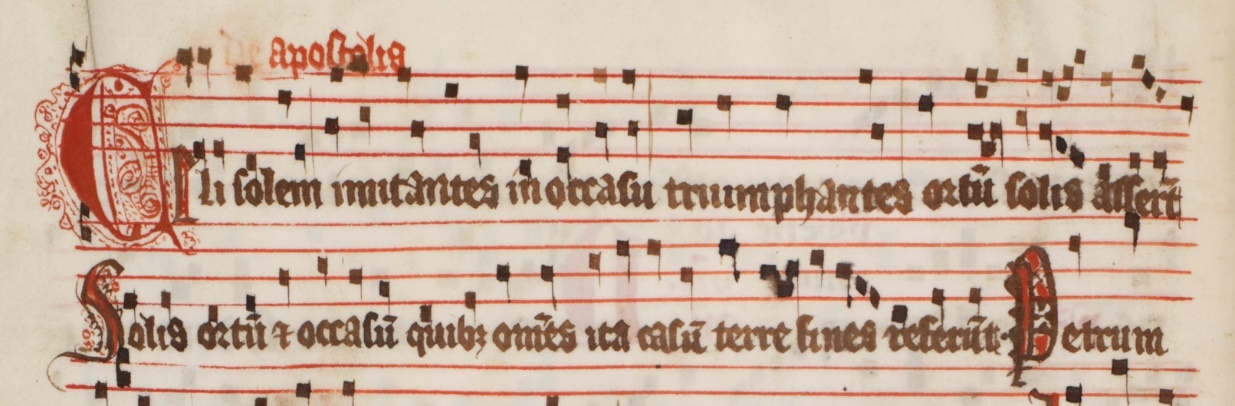 De apostolis
Celi solem imitantes in occasu triumphantes ortū solis asserūt
Solis ortū ⁊ occasū quibꝫ om̄es ita casū terre fines referūt Petrum